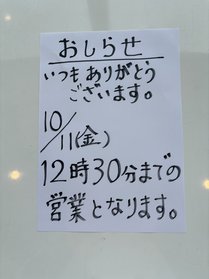 おしらせ
いつもありがとう
ございます。
10/11(金)
12時30分までの
営業となります。